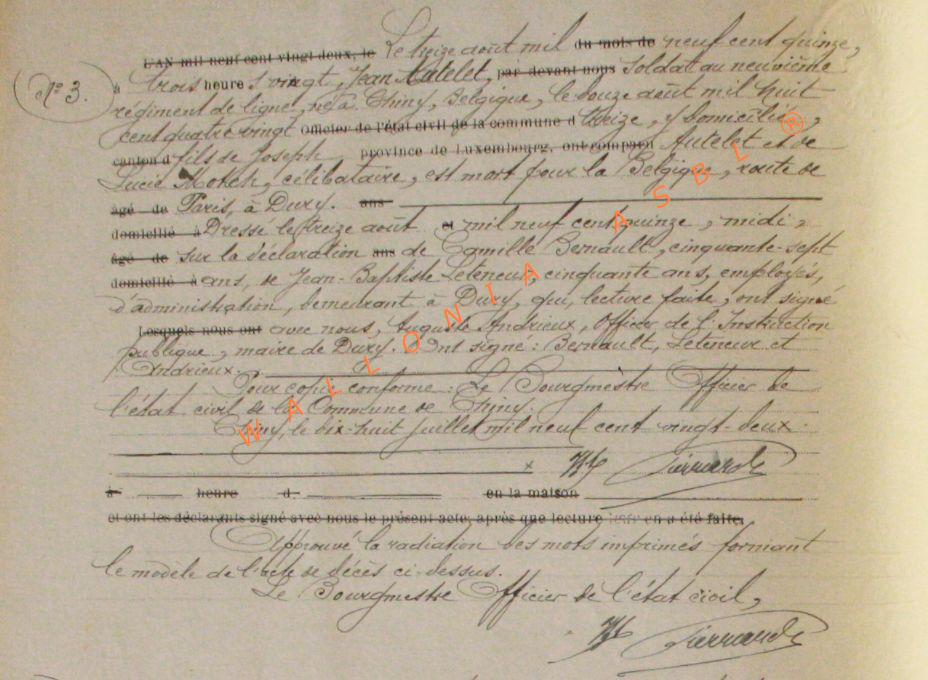 L'AN mil neuf cent vingt-deux, le Le treize août mil du mois de neuf cent quinze,
N° 3. à trois heure s vingt, Jean Autelet, par devant nous soldat au neuvième
régiment de ligne, né à Chiny, Belgique, le douze août mil huit
cent quatre vingt Officier de l'état civil de la commune d treize, y domicilié,
canton d fils de Joseph province de Luxembourg, ont comparu Autelet et de
Lucie , célibataire, est mort pour la Belgique, route de
âgé de Paris, à Dury. ans
domicilié à Dressé le treize août et mil neuf cent quinze, midi,
âgé de sur la déclaration ans de Camille Bernault, cinquante-sept
domicilié à ans, de Jean-Baptiste Leteneur, cinquante ans, employés,
d'administration, demeurant à Dury, qui, lecture faite, ont signé
Lesquels nous ont avec nous, Auguste Andrieux, Officier de l'Instruction
publique, maire de Dury. Ont signé : Bernault, Leteneur et
Andrieux.
Pour copie conforme : Le Bourgmestre Officier de
l'état civil de la Commune de Chiny.
Chiny, le dix-huit juillet mil neuf cent vingt-deux.
à heure d en la maison
et ont les déclarants signé avec nous le présent acte, après que lecture leur en a été faite.
Approuvé la radiation des mots imprimés formant
le modèle de l'acte de décès ci-dessus.
Le Bourgmestre Officier de l'état civil,
WALLONIA ASBL ®